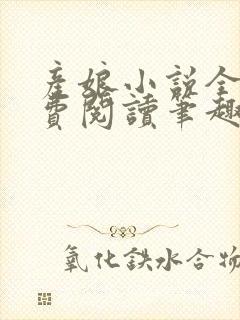 産娘小説全
費閲讀筆趣
氧化鉄水合物